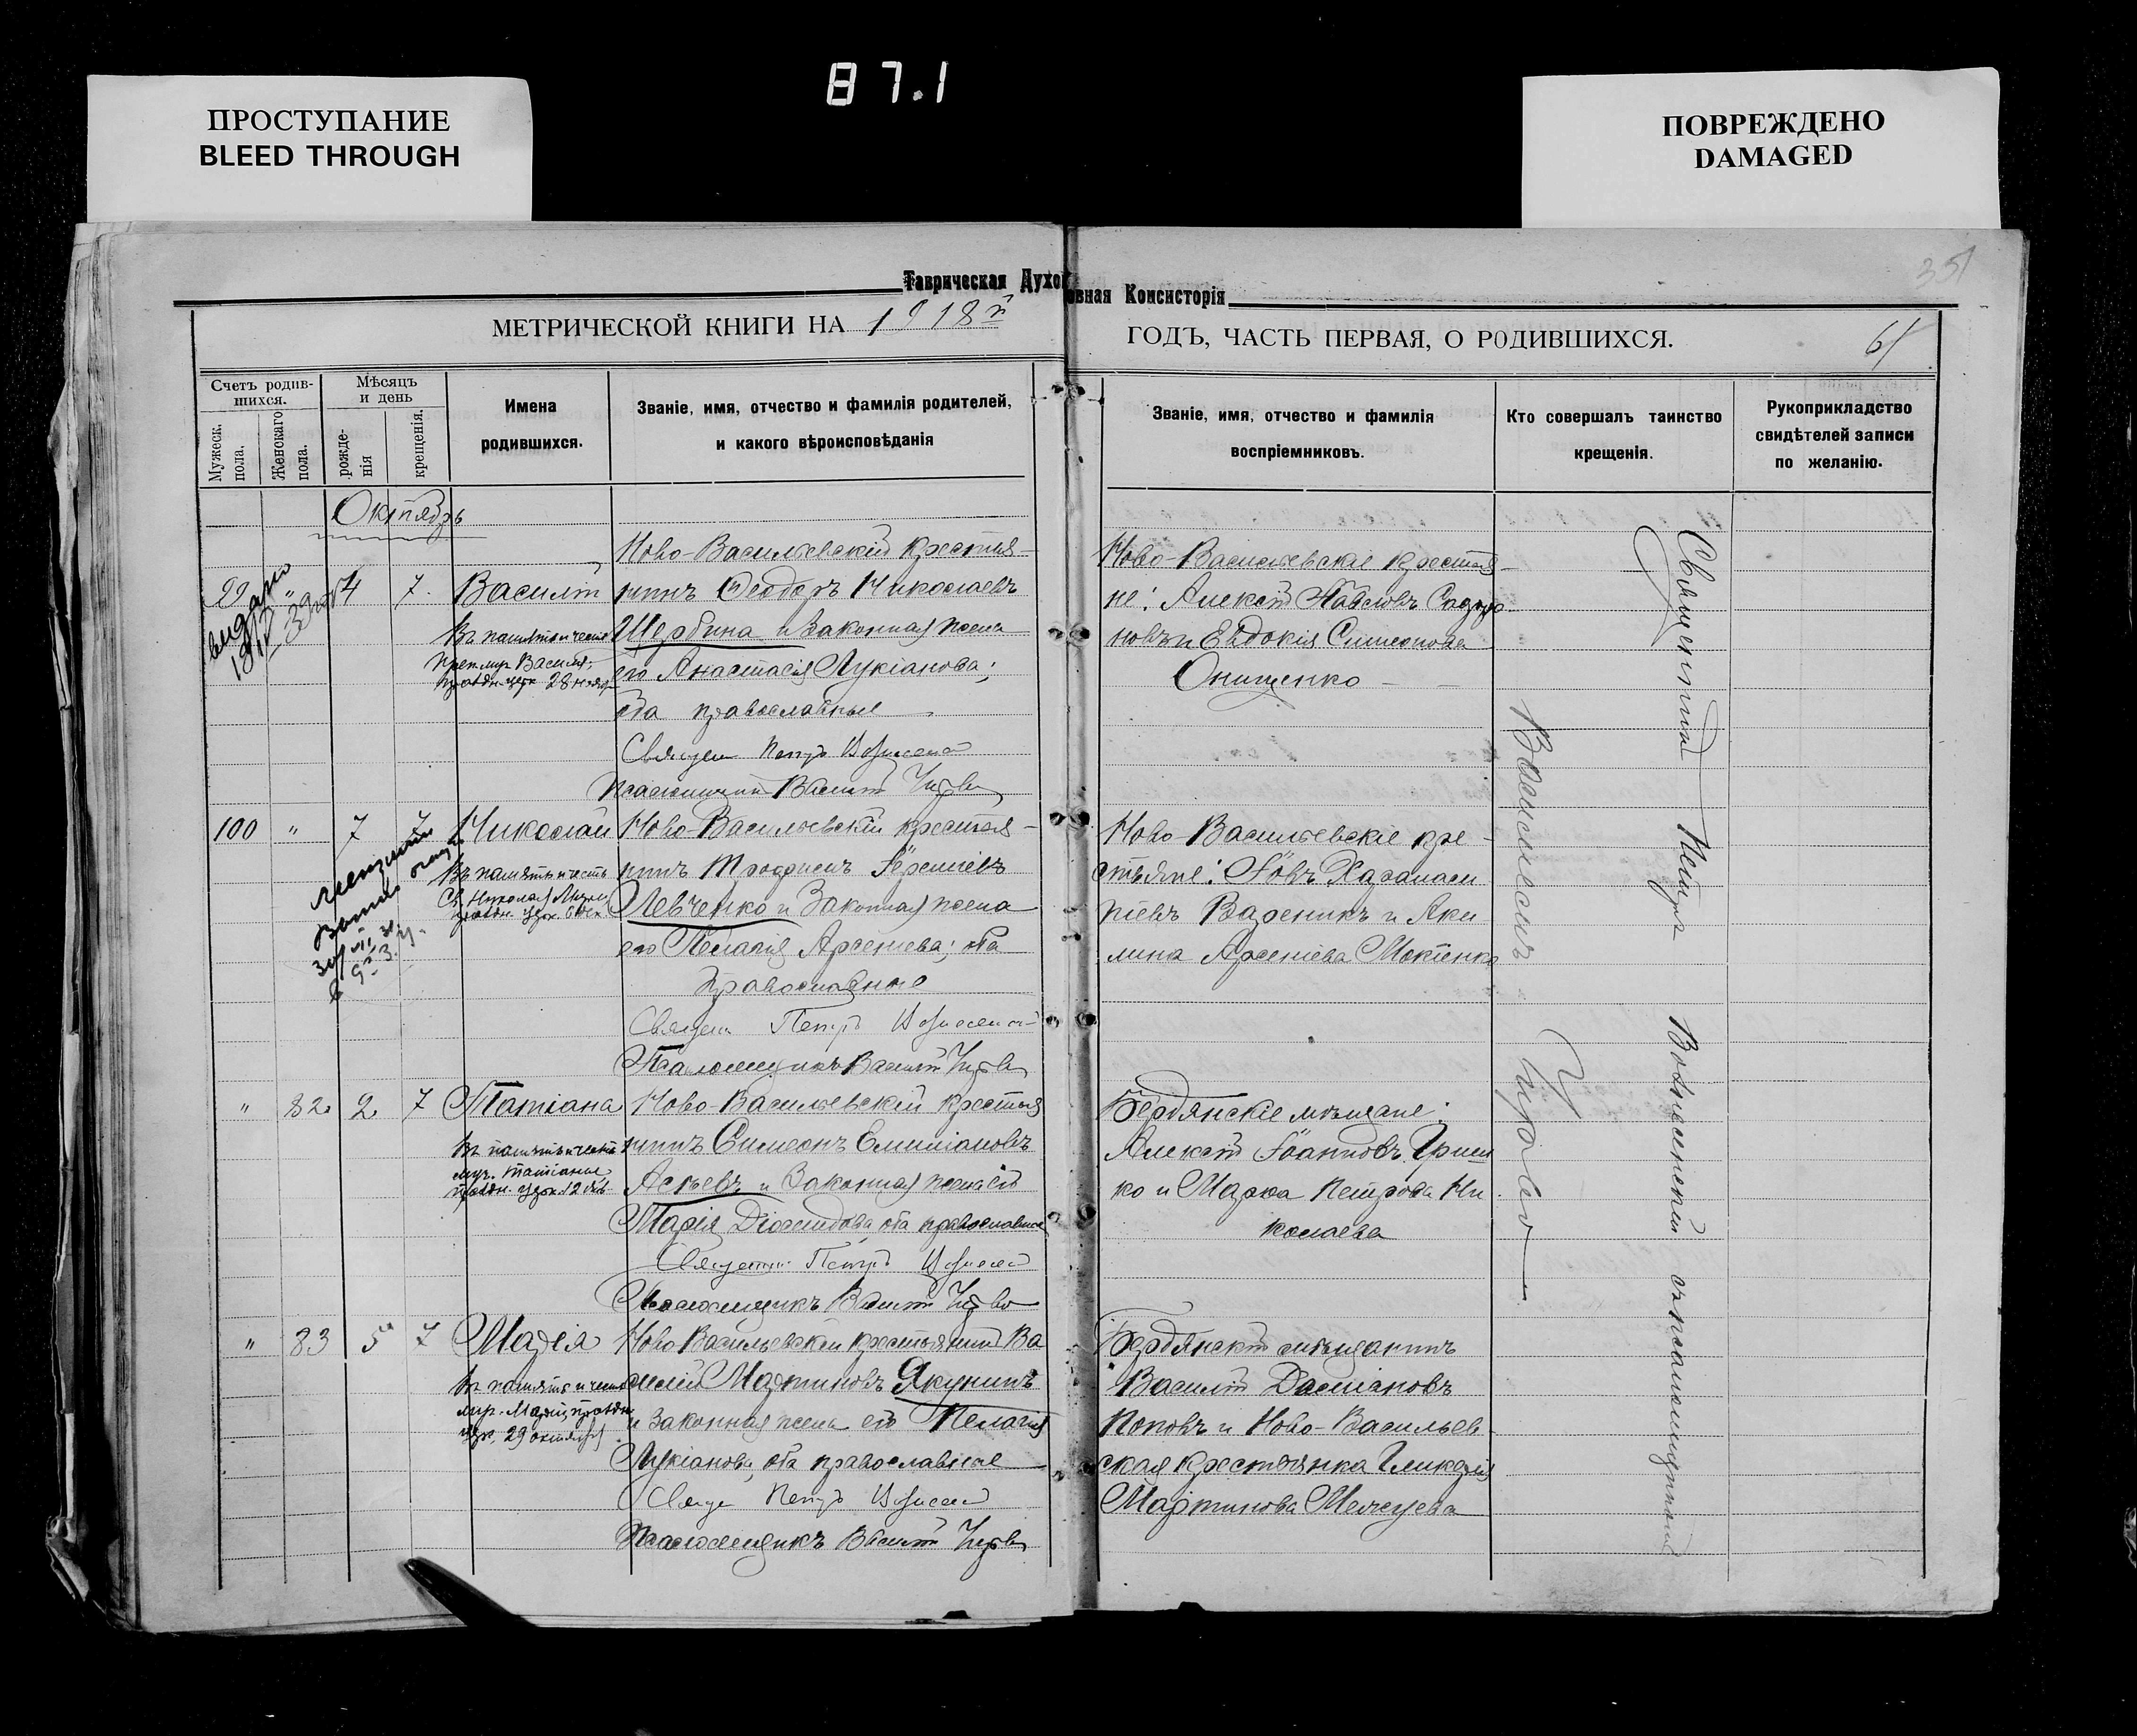 87.1
ПРОСТУПАНИЕ
BLEED THROUGH
ПОВРЕЖДЕНО
DAMAGED
351
Таврическая Духовная Консисторія
МЕТРИЧЕСКОЙ КНИГИ НА 1918й
ГОДЪ, ЧАСТЬ ПЕРВАЯ, О РОДИВШИХСЯ.
61
Счетъ родив-
шихся.
Мужеск.
пола.
Женскаго
пола.
Мѣсяцъ
и день
рожде-
нія
крещенія.
Имена
родившихся.
Званіе, имя, отчество и фамилія родителей,
и какого вѣроисповѣданія
Званіе, имя, отчество и фамилія
воспріемниковъ.
Кто совершалъ таинство
крещенія.
Рукоприкладство
свидѣтелей записи
по желанію.
Октябрь
99 " 4 7. Василій
Въ память и честь
Преп. муч. Василія;
праздн. церк 28 нояб
Ново-Васильевскій крестья-
нинъ Ѳеодоръ Николаевъ
Щербина и законная жена
его Анастасія Лукіанова;
оба православные
Священ Петръ
Псаломщикъ Василій
Ново-Васильевскіе крестья-
не: Алексѣй Павловъ
новъ и Евдокія Симеонова
Онищенко
100 " 7 7 Николай
Въ память и честь
Св. Николая
праздн. церк. 6 дек
Ново-Васильевскій крестья-
нинъ Трофимъ
Левченко и законная жена
его Пелагія Арсеніева; оба
православные
Священ Петръ
Псаломщикъ Василій
Ново-Васильевскіе кре-
стьяне: Іовъ Харалам
піевъ Вареникъ и Аки
лина Арсеніева Мокіенко
" 82. 2. 7 Татіана
Въ память и честь
муч. Татіаны
праздн. церк. 12 янв
Ново-Васильевскій крестья
нинъ Симеонъ Емиліановъ
Асѣевъ и законная жена его
Марія Діомидова, оба православные
Священникъ Петръ
Псаломщикъ Василій
Бердянскіе мѣщане:
Алексѣй Іоанновъ Гриш
ко и Марѳа Петрова Ни
колаева
" 83 5 7 Марія
Въ память и честь
муч. Маріи праздн
церк. 29 октября
Ново Васильевскій крестьянинъ Ва
силій Мартиновъ Якунинъ
и законная жена его Пелагія
Лукіанова, оба православные
Свящ Петръ
Псаломщикъ Василій
Бердянскій мѣщанинъ
Василій Даміановъ
Поповъ и Ново-Васильев
ская крестьянка Гликерія
Мартинова
Священникъ Петръ Вознесенскій съ псаломщикомъ
Василіемъ